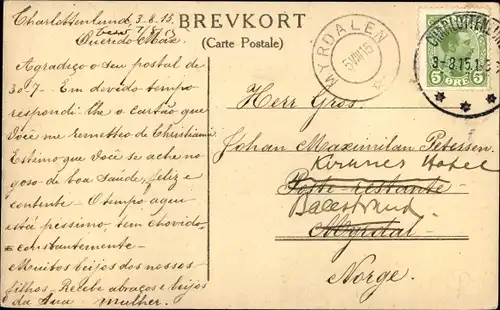 Charlottenlund, 3-8.15.
BREVKORT
(Carte Postale)
MYRDALEN
5 VIII 15
CHARLOTTENLUND
3-8.15.1-5
5 ØRE 5
7/8/15
Querido Max
Agradeço o seu postal de
30-7- Em devido tempo
respondi-lhe o cartão que
Você me remetteo de Christiania
Estimo que Você se ache no
goso de boa saúde, feliz e
contente - O tempo aqui
está péssimo, tem chovido
constantemente-
Muitos beijos dos nossos
filhos - Recebe abraços e beijos
da tua Mulher.
Herr Gros.
Johan Maximilan Petersen
Kvikner Hotel
Poste-restante
Balestrand
Myrdal
Norge.